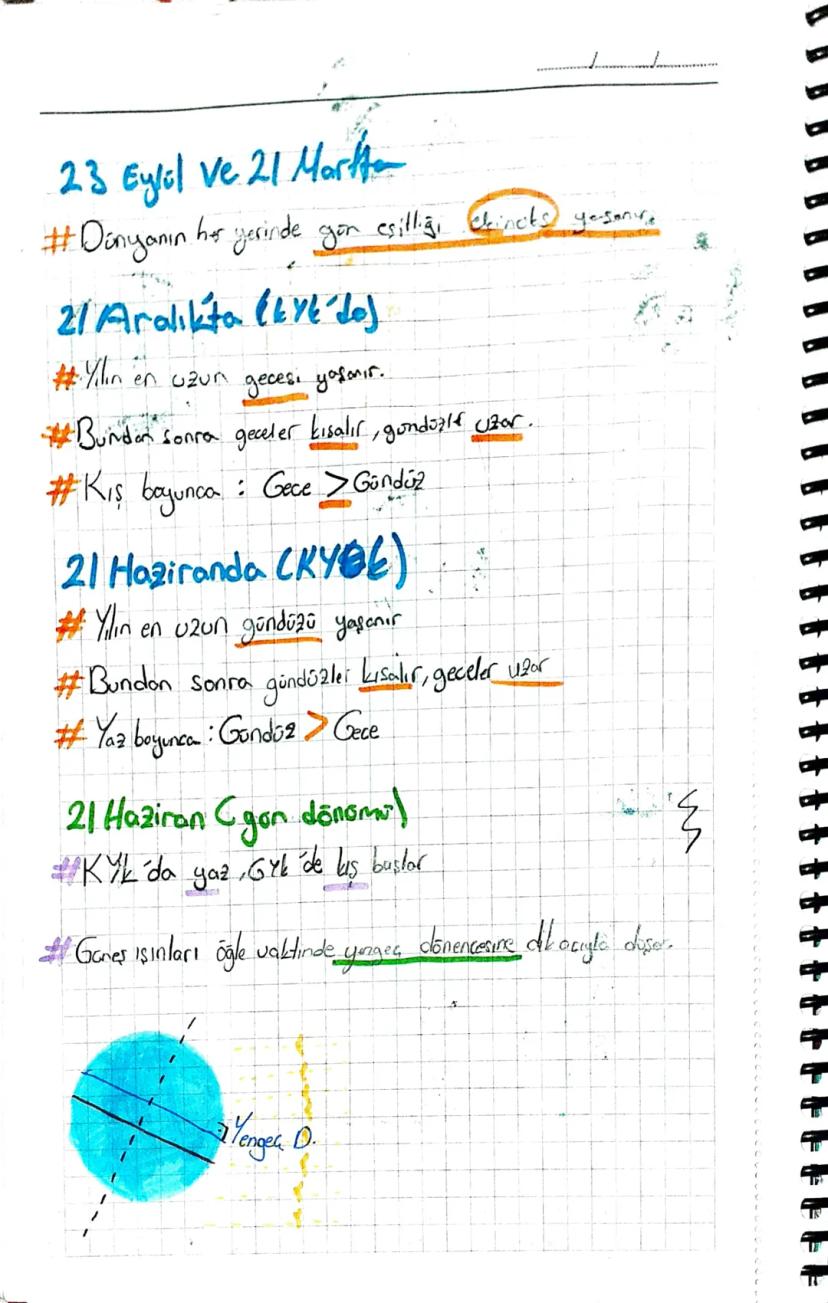 23 Eylül Ve 21 Martta
# Dünyanın her yerinde gün eşitliği ekinoks yaşanır.
21 Aralıkta (KYK'da)
# Yılın en uzun gecesi yaşanır.
# Bundan sonra geceler kısalır, gündüzler uzar.
# Kış boyunca : Gece > Gündüz
21 Haziranda (KYK)
# Yılın en uzun gündüzü yaşanır
# Bundan sonra gündüzler kısalır, geceler uzar
# Yaz boyunca : Gündüz > Gece
21 Haziran (gün dönümü)
# KYK'da yaz, GYK'de kış başlar
# Güneş ışınları öğle vaktinde yengeç dönencesine dik açıyla düşer.
Yengeç D.